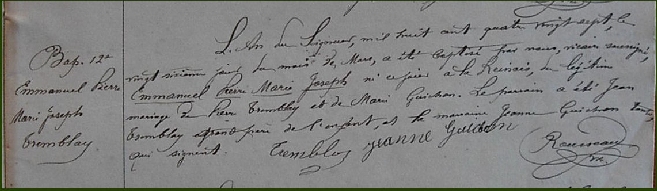 Bap. 12e
Emmanuel Pierre
Marie Joseph
Tremblay
L'An du Seigneur, mil huit cent quatre vingt sept, le
vingt sixième jour du mois de Mars, a été baptisé par nous, vicaire soussigné,
Emmanuel Pierre Marie Joseph né ce jour à la du légitime
mariage de Pierre Tremblay et de Marie Guichon. Le parrain a été Jean
Tremblay frère de l'enfant, et la marraine Jeanne Guichon tante
qui signent. Tremblay Jeanne Guichon
Rousseau
vic